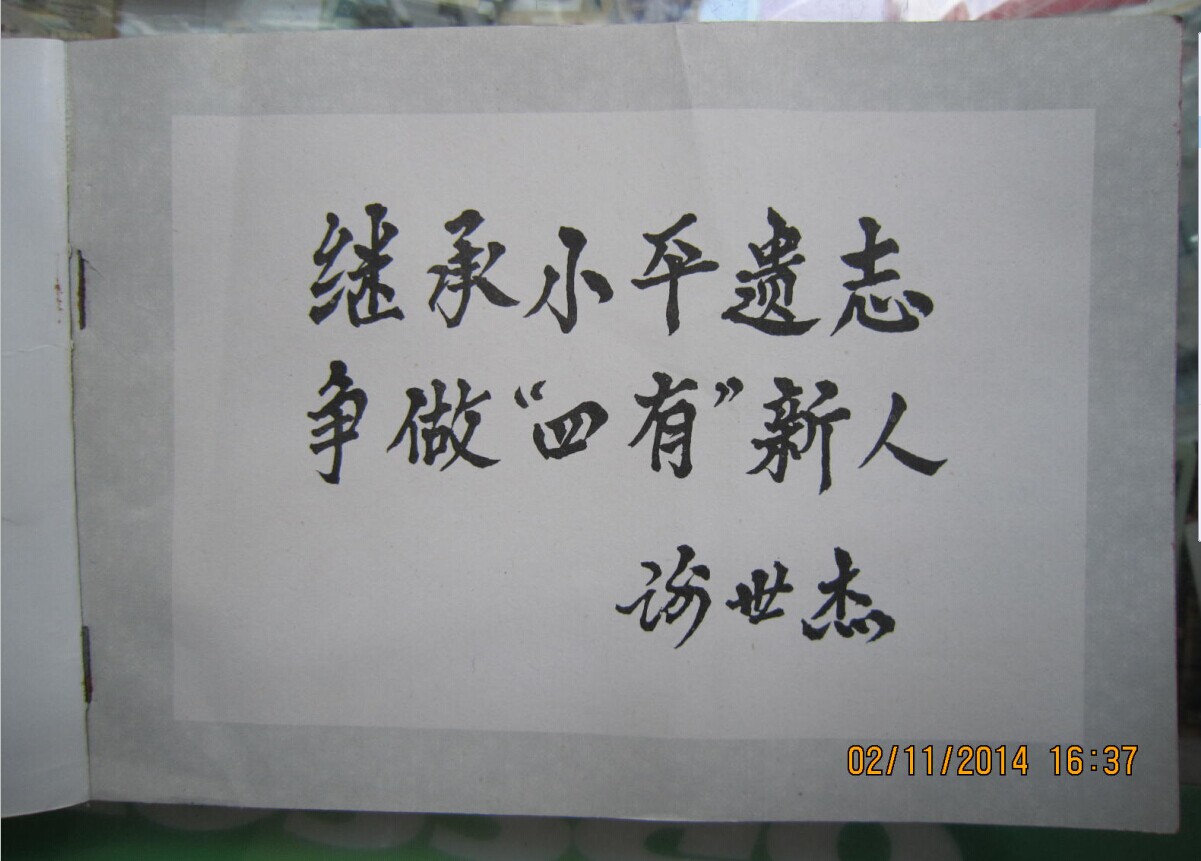 继承小平遗志
争做“四有”新人
谢世杰
02/11/2014 16:37